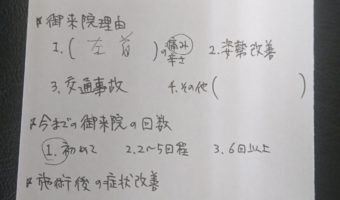 ※御来院理由
1.(左首)の痛み 辛さ 2.姿勢改善
3.交通事故 4.その他( )
※今までの御来院の回数
1.初めて 2.2~5回程 3.6回以上
※施術後の症状改善